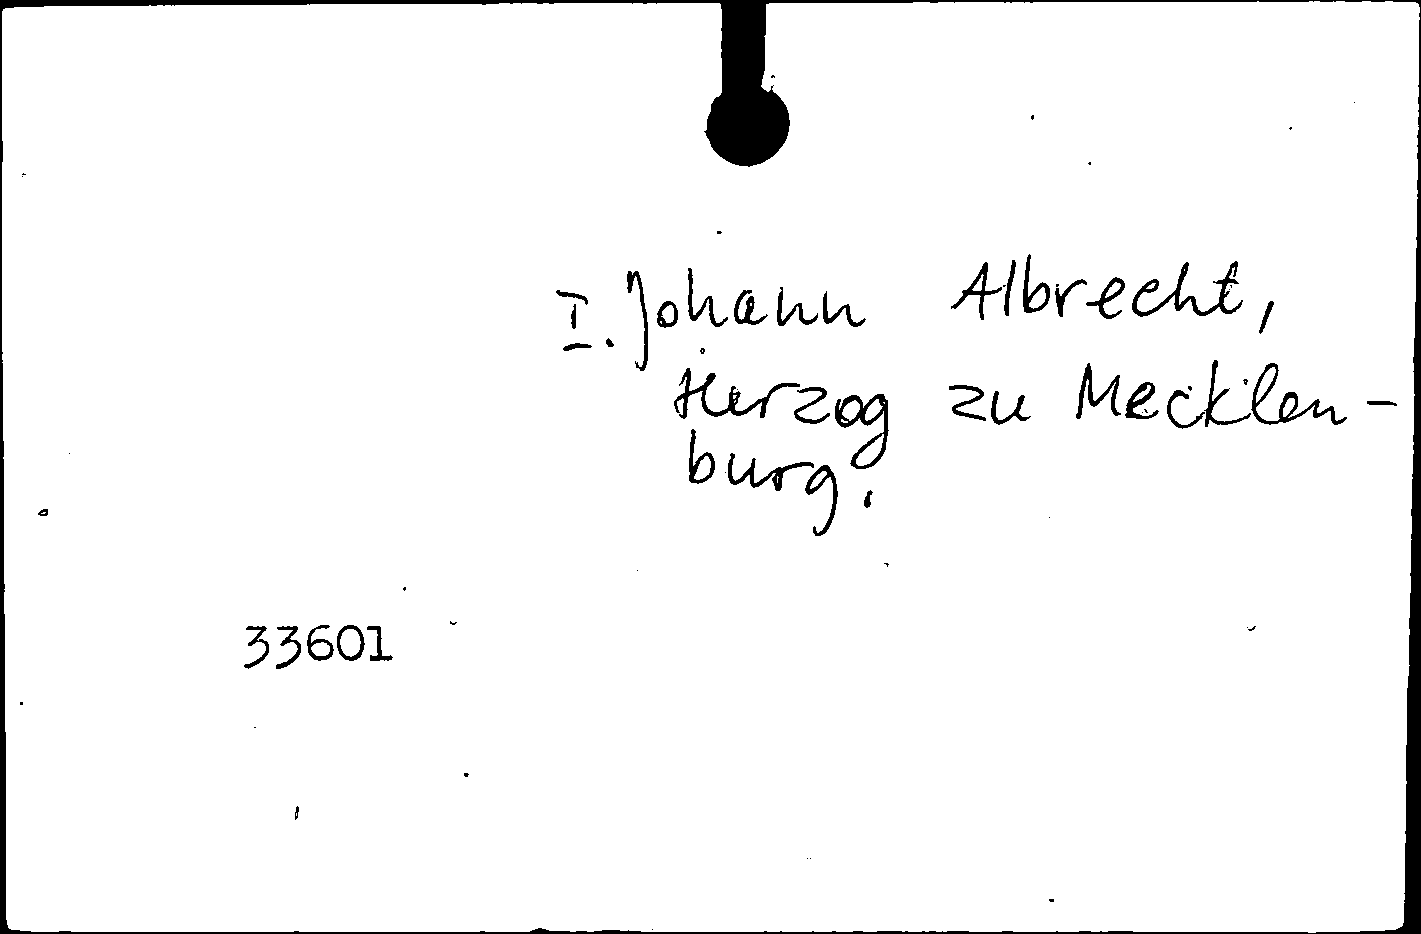 I. Johann Albrecht,
Herzog zu Mecklen-
burg.
33601